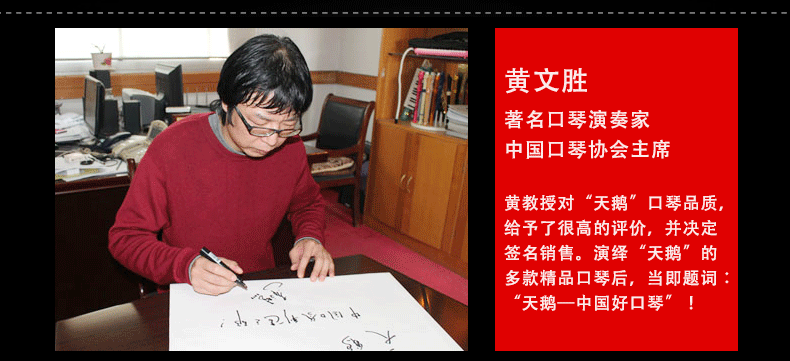 黄文胜
著名口琴演奏家
中国口琴协会主席
黄教授对“天鹅”口琴品质，
给予了很高的评价，并决定
签名销售。演绎“天鹅”的
多款精品口琴后，当即题词：
“天鹅—中国好口琴”！